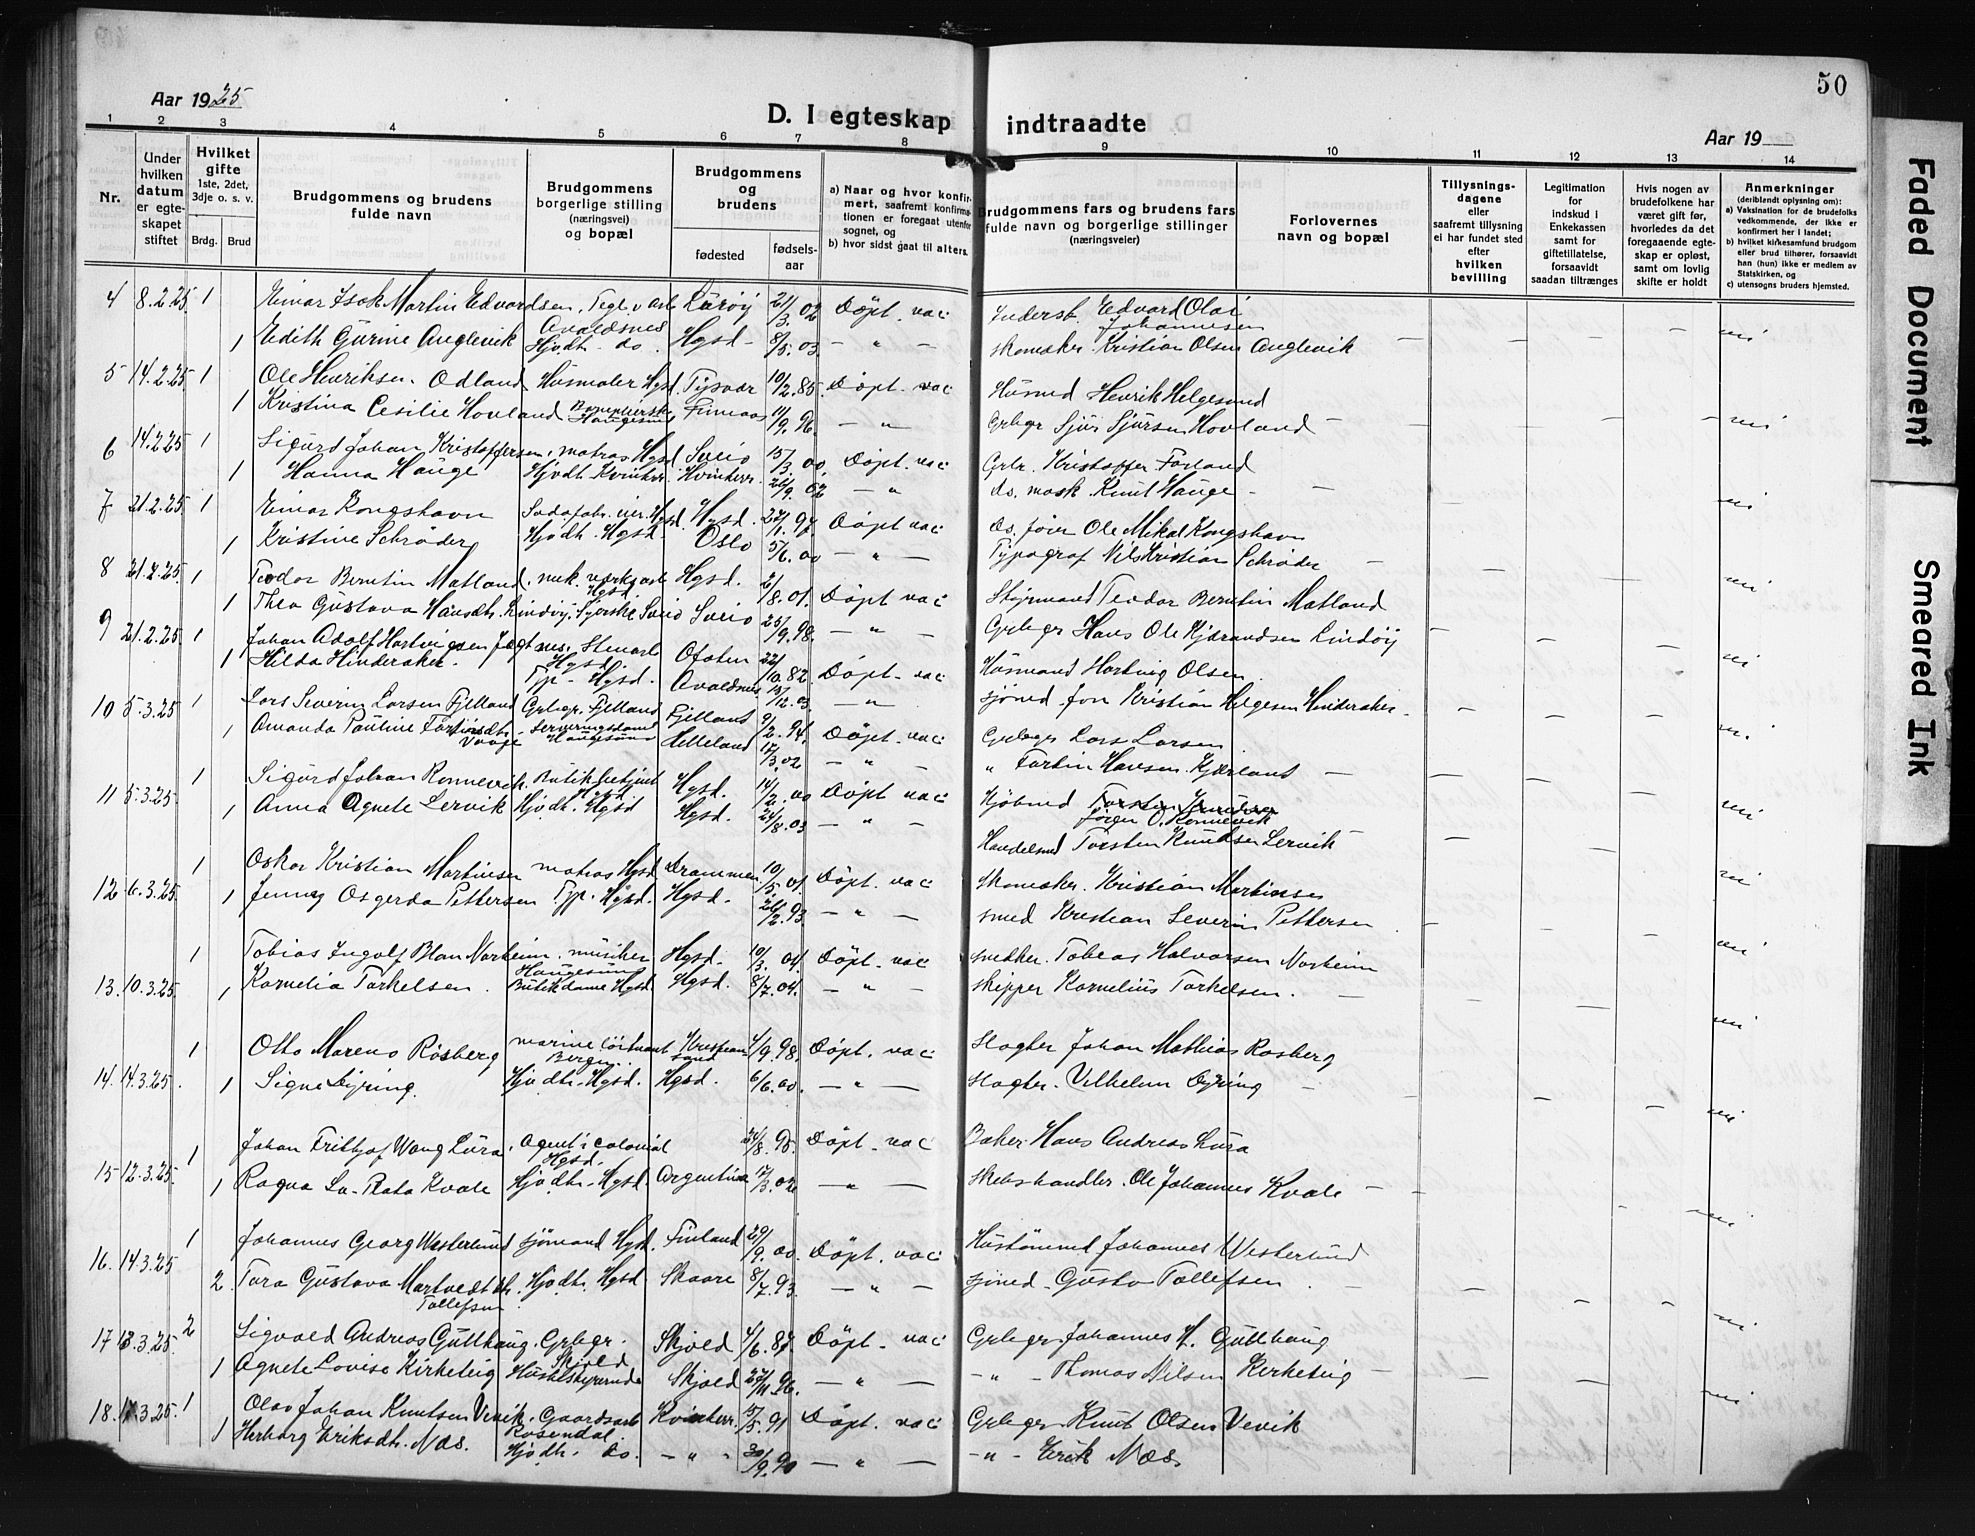 50
Aar 1925
D. I egteskap indtraadte
Aar 19
1 2 3 4 5 6 7 8 9 10 11 12 13 14
Nr.
Under hvilken datum er egte-skapet stiftet
Hvilket gifte 1ste, 2det, 3dje o. s. v.
Brdg. Brud
Brudgommens og brudens fulde navn
Brudgommens borgerlige stilling (næringsvei) og bopæl
Brudgommens og brudens
fødested fødsels-aar
a) Naar og hvor konfir-mert, saafremt konfirma-tionen er foregaat utenfor sognet, og
b) hvor sidst gaat til alters.
Brudgommens fars og brudens fars fulde navn og borgerlige stillinger (næringsveier)
Forlovernes navn og bopæl
Tillysnings-dagene eller saafremt tillysning ei har fundet sted efter hvilken bevilling
Legitimation for indskud i Enkekassen samt for giftetillatelse, forsaavidt saadan tiltrænges
Hvis nogen av brudefolkene har været gift før, hvorledes da det foregaaende egte-skap er opløst, samt om lovlig skifte er holdt
Anmerkninger (deriblandt oplysning om):
a) Vaksination for de brudefolks vedkommende, der ikke er konfirmert her i landet;
b) hvilket kirkesamfund brudgom eller brud tilhører, forsaavidt han (hun) ikke er medlem av Statskirken, og
c) utensogns bruders hjemsted.
4 8.2.25 1 Einar Isak Martin Edvardsen, Teglv. arb. Lurøy 21/3.02 Døpt. vac Indersb. Edvard Olai Johannesen
Avaldsnes
1 Edith Gurine Anglevik Hjv. dh. do. Hgsd. 8/5.03 - " - skomaker Kristian Olsen Anglevik
5 14.2.25 1 Ole Henriksen Odland Husmaler Hgsd. Tysvær 10/2.85 Døpt. vac Husmd Henrik Helgesund
1 Kristina Cesilie Hovland Haugesund Finnaas 11/9.96 - " Grbgr Sjur Sjursen Hovland
6 14.2.25 1 Sigurd Johan Kristoffersen, matros Hgsd Sveio 15/3.00 Døpt. vac Grbr. Kristoffer Førland
1 Hanna Hauge Hjv.dh. Kvinherr. Kvinherr. 26/9.02 - " do. mask. Knut Hauge
7 21.2.25 1 Einar Kongshavn Hgsd. Hgsd. 27/1.97 Døpt vac do. fører Ole Mikal Kongshavn
1 Kristine Schrøder Hjv.dh. Hgsd. Oslo 5/6.00 - " - Typograf Nils Kristian Schrøder
8 21.2.25 1 Teodor Berntin Matland, mek. verksarb. Hgsd. Hgsd. 6/8.01 Døpt vac Styrmand Teodor Berntin Matland
1 Thea Gustava Hansdh. Lindøy, Sveio Sveio 25/9.98 - " - Grbgr Hans Ole Kjærandsen Lindøy
9 21.2.25 1 Johan Adolf Hartvigsen Stenarb. Hgsd. Ofoten 22/10.82 Døpt. vac Husmand Hartvig Olsen
1 Hilda Hinderaker Tjp. Hgsd. Avaldsnes 15/12.03 - " - sjømd. Jon Kristian Helgesen Hinderaker
10 5.3.25 1 Lars Severin Larsen Fjelland Grbgr. Fjelland Fjelland 9/2.94 Døpt. vac Grbgr Lars Larsen
1 Amanda Pauline Vaage Serveringsdame Haugesund Helleland 17/3.02 - " - " Hansen Kjærland
11 5.3.25 1 Sigurd Johan Rønnevik Butikbetjent Hgsd Hgsd. 14/2.00 Døpt vac Kjøbmd Jørgen O. Rønnevik
1 Anna Agnete Lervik Hjv.dh. Hgsd Hgsd. 24/8.03 - " - Handelsmd Torsten Knudsen Lervik
12 6.3.25 1 Oskar Kristian Martinsen matros Hgsd Drammen 10/5.01 Døpt. vac Skomaker Kristian Martinsen
1 Jenny Osgerda Pettersen Tjp. Hgsd. Hgsd. 26/2.93 - " - smed Kristian Severin Pettersen
13. 10.3.25 1 Tobias Ingolf Blan Norheim. musiker Haugesund Hgsd. 10/3.04 Døpt. vac snedker. Tobias Halvorsen Norheim
1 Kornelia Torkelsen. Butikdame Hgsd. Hgsd. 8/7.04. - " - skipper Kornelius Torkelsen.
14. 14.3.25 1 Otto Marens Rosberg marine løitnant Bergen Kristiansund 4/9.98 Døpt. vac Slagter Johan Mathias Rosberg
1 Signe Dyring. Hjv.dh. Hgsd. Hgsd. 6/6.00 - " - Slagter. Vilhelm Dyring
15 12.3.25 1 Johan Fritjof Wang Lura. Agent i colonial Hgsd. 24/8.95 Døpt. vac Baker Hans Andreas Lura
1 Ragna La-Plata Kvale Hjv.dh. Hgsd. Argentina 17/3.02 - " - Skibshandler. Ole Johannes Kvale
16. 14.3.25 1 Johannes Georg Westerlund sjømand Hgsd. Finland 29/9.00 Døpt. vac Hustømmd Johannes Westerlund
2 Tora Gustava Martvedt Tollefsen Hjv.dh. Hgsd. Skaare 8/7.93. - " - sjømd. Gustav Tollefsen
17 13.3.25. 2 Sigvald Andreas Gutthaug. Grbgr. Skjold Skjold 4/6.87 Døpt. vac Grbgr. Johannes H. Gutthaug
1 Agnete Lovise Kirketeig Husbestyrerinde Skjold 27/11.96. - " - - " - Thomas Nilsen Kirketeig
18. 17.3.25. 1 Olav Johan Knutsen Vevik. Gaardsarb. Rosendal Kvinherr. 15/5.91 Døpt. vac Grbgr Knut Olsen Vevik
1 Herborg Eriksdh. Næs. Hjv.dh. do. - " - 30/9.90 - " - - " - Erik Næs.
Faded Document
Smeared Ink